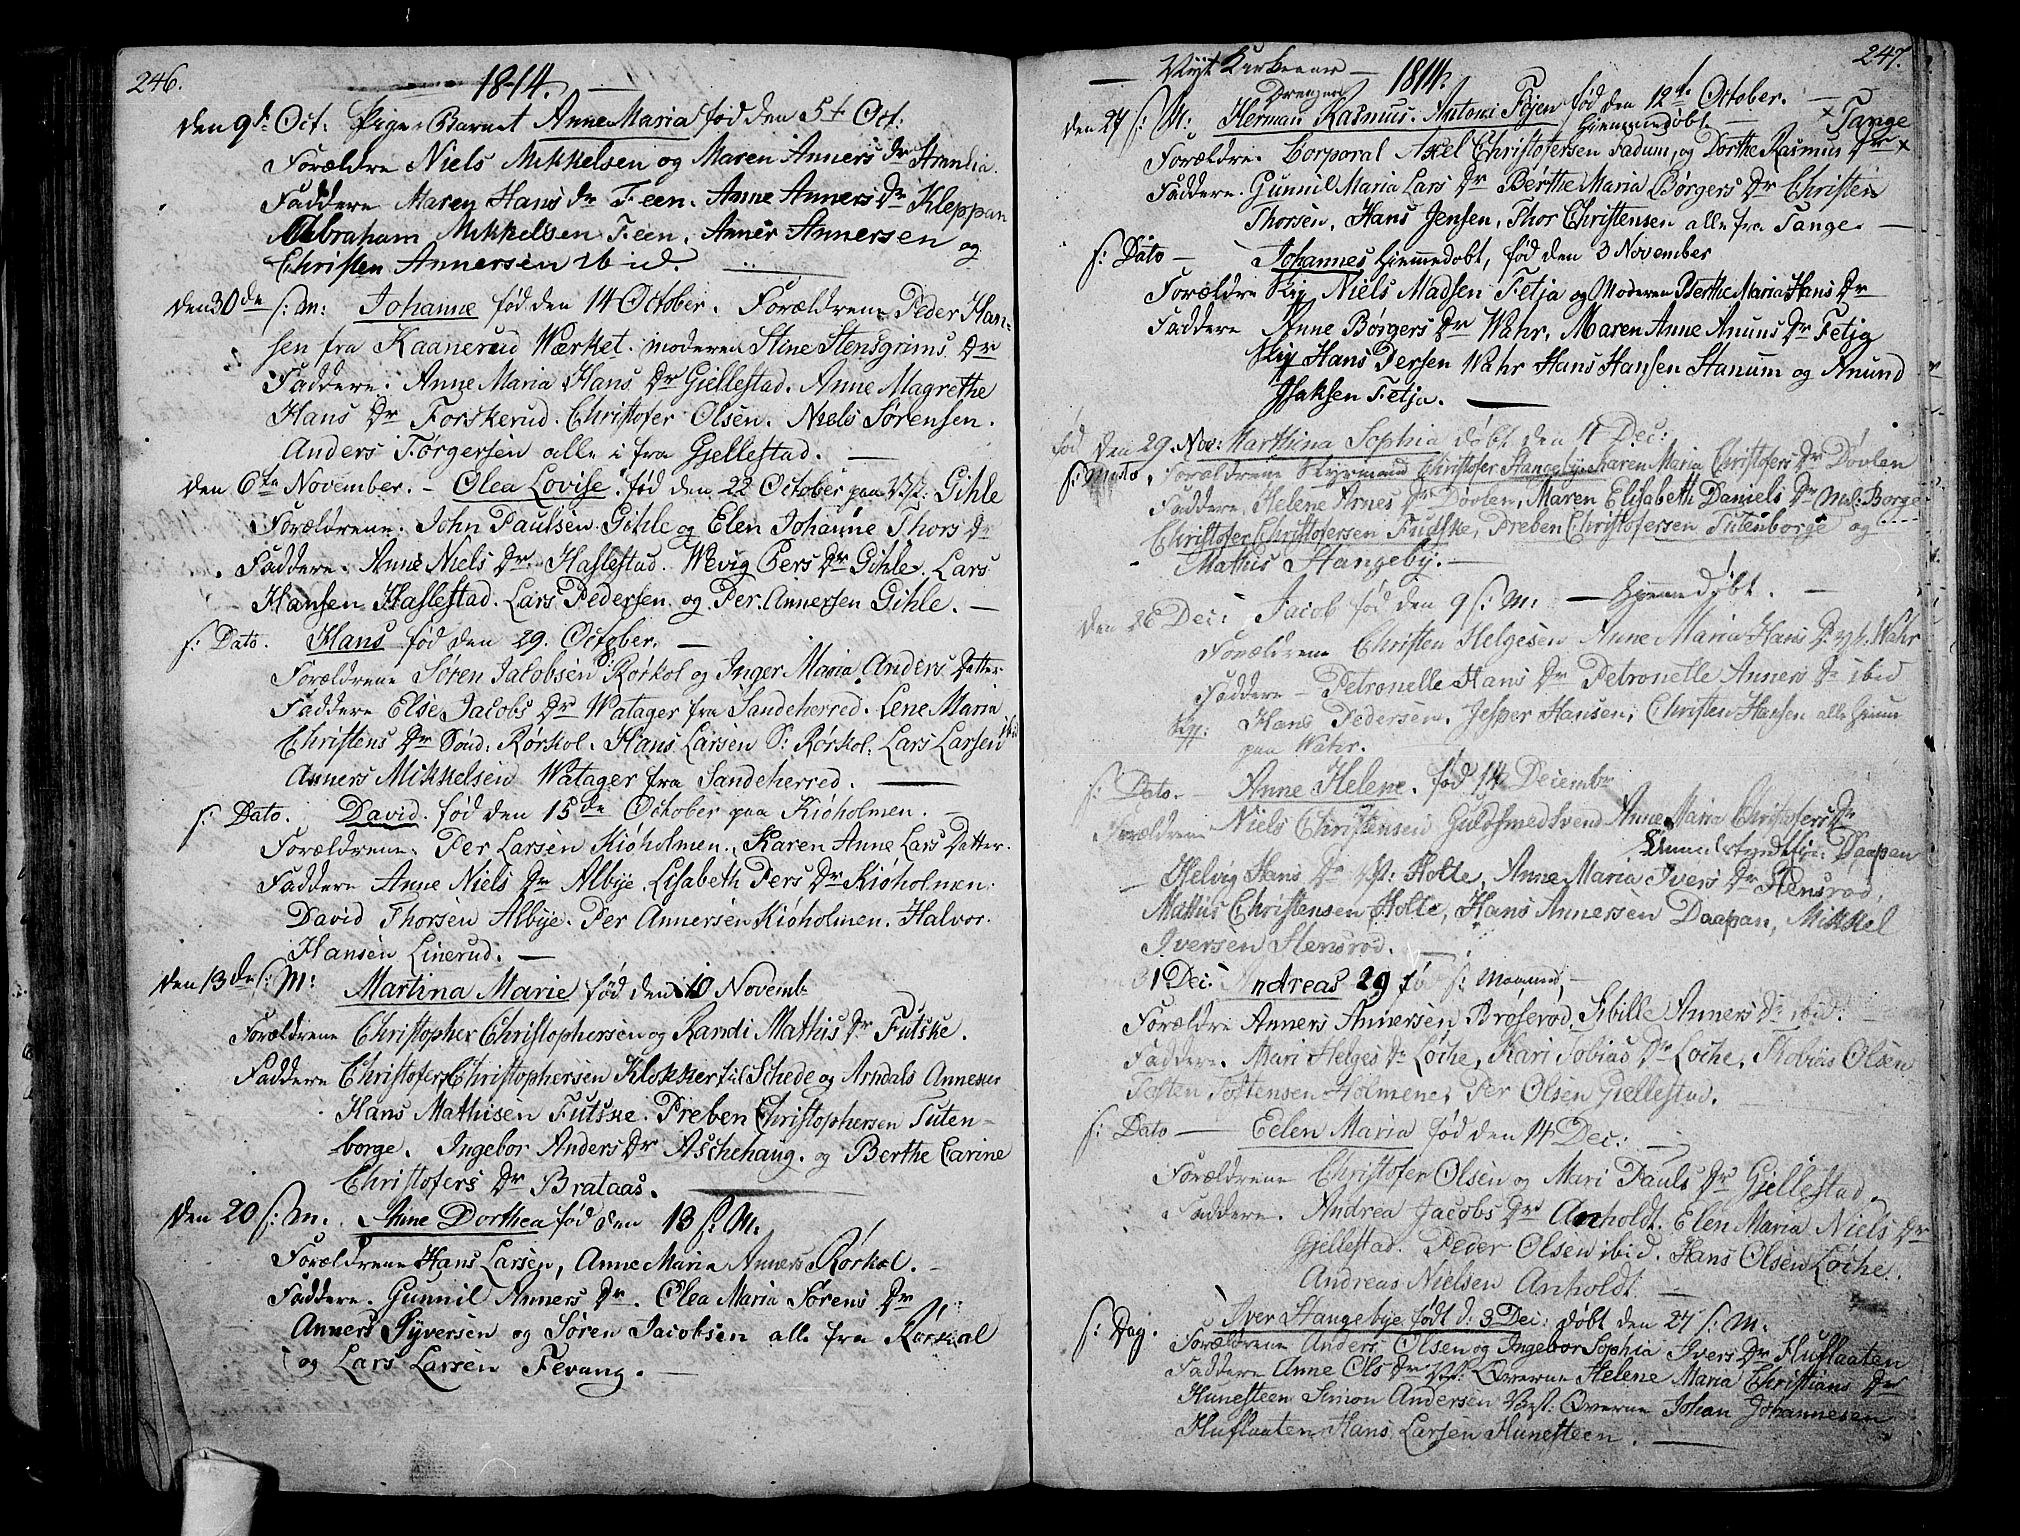 246.
1814.
den 9de Oct. Pige-Barnet Anne Maria fød den 5t Oct.
Forældre Niels Mikkelsen og Maren Anners Dr
Faddere Maren Hans dr Feen. Anne Anners Dr Kleppan
Abraham Mikkelsen Feen. Anner Annersen og
Christen Annersen ibid.
den 30de s: M: Johanne fød den 14 October. Forældrene Peder Han-
sen fra Kaanerud Wærket. moderen Stine Stensgrims Dr
Faddere. Anne Maria Hans Dr Giellestad. Anne Magrethe
Hans Dr Forskerud. Christofer Olsen. Niels Sørensen.
Anders Törgersen alle i fra Gjellestad.
den 6te November. - Olea Lovise. fød den 22 October paa Gihle
Forældrene. John Paulsen Gihle og Elen Johanne Thors Dr
Faddere. Anne Niels Dr. Haslestad. Wevig Pers Dr Gihle. Lars
Hansen Haslestad. Lars Pedersen og Per Annersen Gihle.
s: Dato. Hans fød den 29. October.
Forældrene Søren Jacobsen S: Rörkol og Inger Maria Anders Datter
Faddere Else Jacobs Dr Watager fra Sandeherred. Lene Maria
Christens Dr Sönd: Rørkol. Hans Larsen S: Rørkol. Lars Larsen ibid
Anners Mikkelsen Watager fra Sandeherred.
s: Dato. David. fød den 15de October paa Kiøholmen.
Forældrene. Per Larsen Kiøholmen. Karen Anne Lars Datter.
Faddere Anne Niels Dr Albye. Lisabeth Pers Dr Kiøholmen.
David Thorsen Albye. Per Annersen Kiøholmen. Halvor
Hansen Linerud.
den 13de s: M: Martina Marie fød den 10 Novemb.
Forældrene Christopher Christophersen og Randi Mathis Dr Futske.
Faddere Christofer Christophersen Klokker til Schede og Arndals Annexer
Hans Mathisen Futske. Preben Christophersen Tuten-
borge. Ingebor Anders Dr Aschehaug. og Berthe Carine
Christofers Dr Brataas.
den 20 s: m. Anne Dorthea fød den 13 s: M.
Forældrene Hans Larsen, Anne Maria Anners Rørkol.
Faddere. Gunnil Anners Dr. Olea Maria Sørens Dr
Anners Syversen og Søren Jacobsen alle fra Rørkol
og Lars Larsen Fevang.
247.
1814.
Drengene
den 27 s: M: Herman Rasmus. Antoni Föjen fød den 12te October.
Hjemmedøbt × Tange
Forældre. Corporal Axel Christofersen Fadum, og Dorthe Rasmus Dr ×
Faddere. Gunnil Maria Lars Dr Börthe Maria Børgers Dr Christen
Thorsen, Hans Jensen, Thor Christensen alle fra Tange.
s: Dato - Johannes hjemmedøbt, fød den 3 November
Forældre Niels Madsen Fetja og Moderen Berthe Maria Hans Dr
Faddere Anne Børgers Dr Wahr, Maren Anne Anuns Dr Fetja
Hans Persen Wahr Hans Hansen Stanum og Anund
Isaksen Fetja.
fød den 29. Nov: Marthina Sophia döbt den 11 Dec:
Forældrene Styrmand Christofer Stangebye Karen Maria Christofers Dr Døvlen
Faddere, Helene Arnes Dr Døvlen, Maren Elisabeth Daniels Dr Borge
Christofer Christofersen Fudske, Preben Christofersen Tutenborge og
Mathis Stangeby.
den 26 Dec: Jacob fød den 9 s: M: - Hjemmedøbt.
Forældrene Christen Helgesen Anne Maria Hans Dr Wahr
Faddere - Petronelle Hans Dr Petronelle Anners Dr ibid
Hans Pedersen. Jesper Hansen, Christen Hansen alle
paa Wahr.
s: Dato. - Anne Helene. fød 14 Decembr
Forældrene Niels Christensen Guldsmedsvend Anne Maria Christofers Dr
Daapan
Helvig Hans Dr Holte, Anne Maria Ivers Dr Stensrød,
Mathis Christensen Holte, Hans Annersen Daapan, Mikkel
Iversen Stensrod.
31 Dec: Andreas 29 fø s: Maaned,
Forældre Anners Annersen Brøserød, Sibille Anners Dr ibid.
Faddere. Mari Helges Dr Loche, Kari Tobias Dr Loche, Thobias Olsen
Tosten Tostensen Holmene, Per Olsen Giellestad.
s: Dato - Eelen Maria fød den 14 Dec:
Forældrene Christofer Olsen og Mari Pauls Dr Gjellestad.
Faddere. Andrea Jacobs Dr Anholdt. Elen Maria Niels Dr
Gjellestad. Peder Olsen ibid. Hans Olsen Løche.
Andreas Nielsen Anholdt.
s: Dag. Iver Stangebye født d: 3 Dec: døbt den 27 s: M.
Forældrene Anders Olsen og Ingebor Sophia Ivers Dr Huflaaten
Faddere Anne Ols Dr Øverne Helene Maria Christians Dr
Hunesteen Simon Andersen Øverne Johan Johannesen
Huflaaten Hans Larsen Hunesteen.